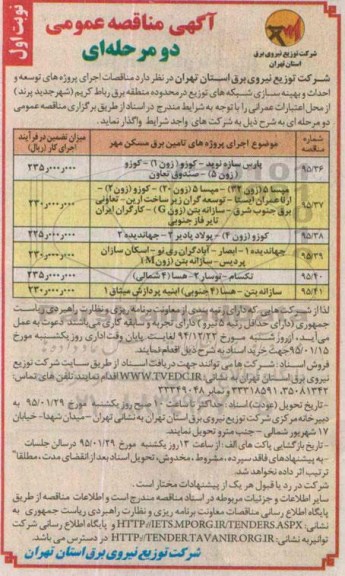 نوبت اول
آگهی مناقصه عمومی
دو مرحله‌ای
شرکت توزیع نیروی برق
استان تهران
شرکت توزیع نیروی برق استان تهران در نظر دارد مناقصات اجرای پروژه های توسعه و
احداث و بهینه سازی شبکه های توزیع در محدوده منطقه برق رباط کریم (شهر جدید پرند)
از محل اعتبارات عمرانی را با توجه به شرایط مندرج در اسناد از طریق برگزاری مناقصه عمومی
دو مرحله ای به شرح ذیل به شرکت های واجد شرایط واگذار نماید.
شماره مناقصه
موضوع اجرای پروژه های تامین برق مسکن مهر
میزان تضمین در فرآیند اجرای کار (ریال)
۹۵/۳۶
پارس سازه نوید - کوزو (زون ۱) - کوزو
(زون ۵) - صندوق تعاون
۲۳۵,۰۰۰,۰۰۰
۹۵/۳۷
میسا ۵ (زون ۳۲) - میسا ۵ (زون ۲۰) - کوزو (زون ۲) -
ارفا عمران ایستا - توسعه گران زیر ساخت آرین - تعاونی
برق جنوب شرق - سازانه بتن (زون G) - کارگران ایران
تایر فاز جنوبی
۲۳۰,۰۰۰,۰۰۰
۹۵/۳۸
کوزو (زون ۴) - پولاد پادیر ۲ - جهاندیده ۲
۲۲۵,۰۰۰,۰۰۰
۹۵/۳۹
جهاندیده ۱ - ایصار - آبادگران ری نو - اسکان سازان
پردیس - سازانه بتن (زون M)
۲۳۰,۰۰۰,۰۰۰
۹۵/۴۰
تکسام - نوساز ۳ - هسا (۴ شمالی)
۲۳۵,۰۰۰,۰۰۰
۹۵/۴۱
سازانه بتن - هسا (۴ جنوبی) ابنیه پردازش میثاق ۱
۲۳۰,۰۰۰,۰۰۰
لذا از شرکت هایی که دارای رتبه بندی از معاونت برنامه ریزی و نظارت راهبردی ریاست
جمهوری (دارای حداقل رتبه ۵ نیرو) دارای تجربه و سابقه کاری می باشند دعوت به عمل
می آید، از روز شنبه مورخ ۹۴/۱۲/۲۲ لغایت پایان وقت اداری روز یکشنبه مورخ
۹۵/۰۱/۱۵ جهت خرید اسناد به شرح ذیل اقدام نمایند.
فروش اسناد: شرکت ها می توانند جهت دریافت اسناد از طریق سایت شرکت توزیع
نیروی برق استان تهران به نشانی: WWW.TVEDC.IR اقدام نمایند. تلفن های تماس:
۳۵۰۸۱۳۴۲، ۳۳۳۱۸۵۹۱ و نمابر ۳۳۳۴۹۰۴۸
- تاریخ تحویل (عودت) اسناد: حداکثر تا ساعت ۱۰ صبح روز یکشنبه مورخ ۹۵/۰۱/۲۹ به
دبیرخانه مرکزی شرکت توزیع نیروی برق استان تهران به نشانی تهران - میدان شهدا - خیابان
۱۷ شهریور شمالی - جنب مترو تحویل نمایند.
- تاریخ بازگشایی پاکت های الف از ساعت ۱۳ روز یکشنبه مورخ ۹۵/۰۱/۲۹ در سالن جلسات
- به پیشنهادهای فاقد سپرده، مشروط، مخدوش، تحویل اسناد بعد از انقضای مدت، مطلقا"
ترتیب اثر داده نخواهد شد.
شرکت در رد یا قبول هر یک از پیشنهادات مختار است.
سایر اطلاعات و جزئیات مربوطه در اسناد مناقصه مندرج است و اطلاعات مناقصه از طریق
پایگاه اطلاع رسانی مناقصات معاونت برنامه ریزی و نظارت راهبردی ریاست جمهوری به
نشانی: HTTP://IETS.MPORG.IR/TENDERS.ASPX و پایگاه اطلاع رسانی شرکت
توانیر به نشانی: HTTP://TENDER.TAVANIR.ORG.IR در دسترس می باشد.
شرکت توزیع نیروی برق استان تهران